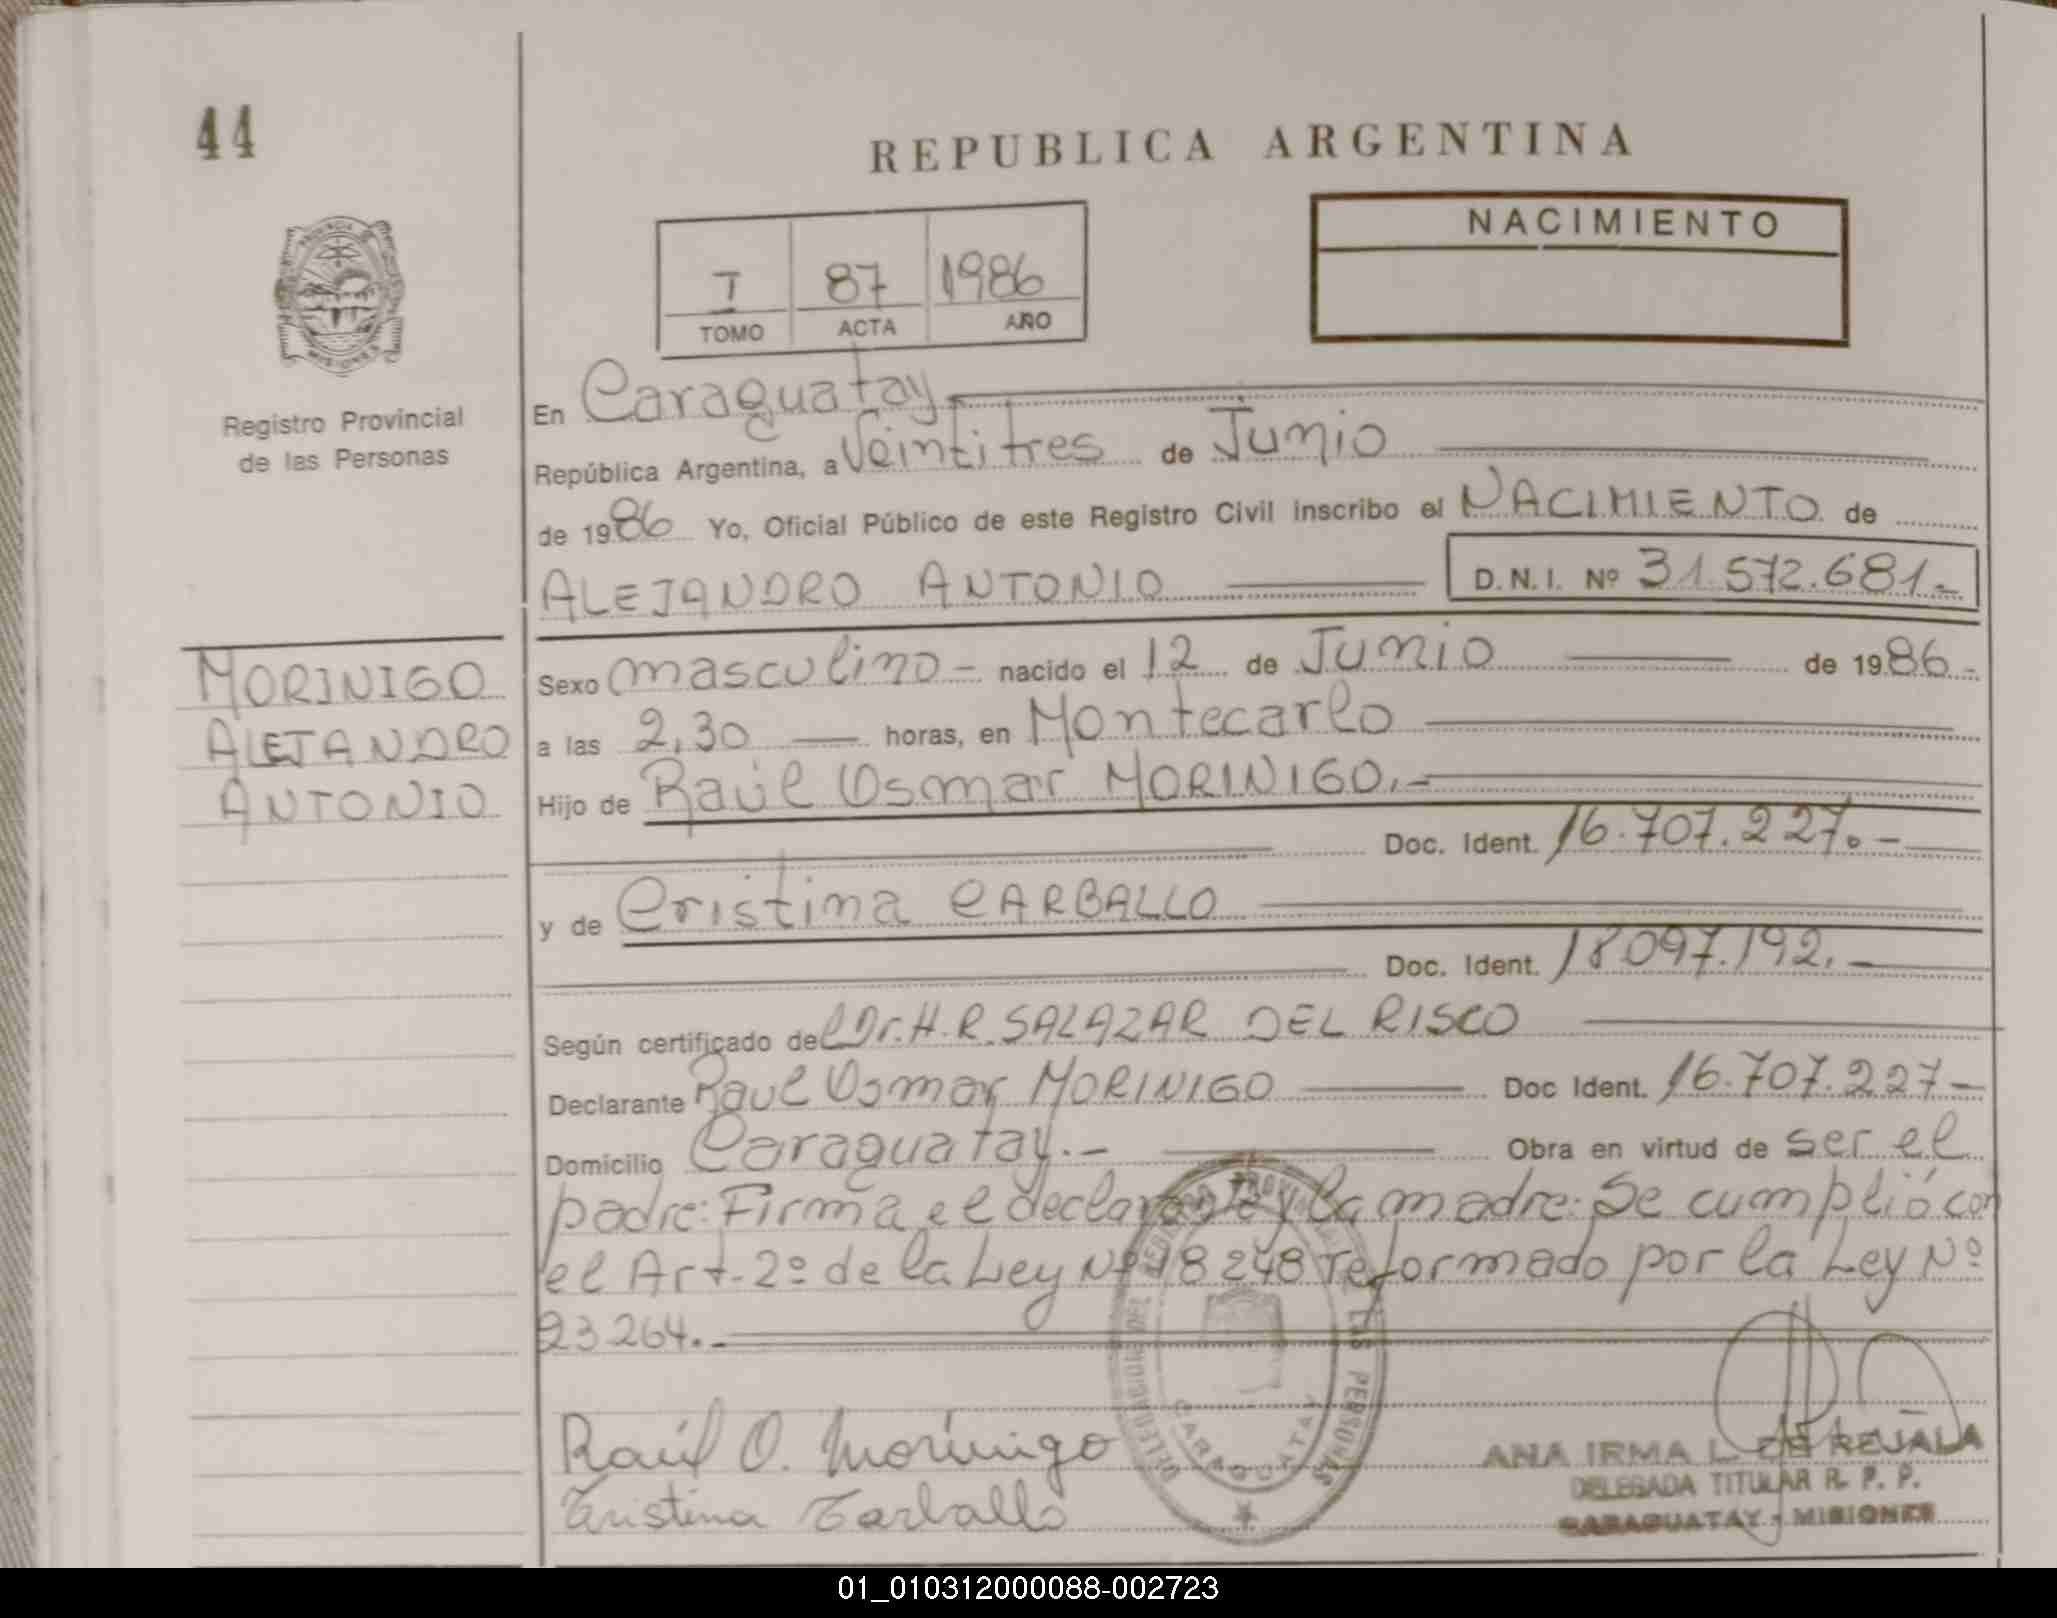 44
REPUBLICA ARGENTINA
NACIMIENTO
I 87 1986
TOMO ACTA AÑO
Registro Provincial
de las Personas
En Caraguatay
República Argentina, a Veintitres de Junio
de 1986 Yo, Oficial Público de este Registro Civil inscribo el NACIMIENTO de
ALEJANDRO ANTONIO D.N.I. Nº 31.572.681.-
MORINIGO
ALEJANDRO
ANTONIO
Sexo masculino - nacido el 12 de Junio de 1986.-
a las 2,30 horas, en Montecarlo
Hijo de Raúl Osmar MORINIGO.-
Doc. Ident. 16.707.227.-
y de Cristina CARBALLO
Doc. Ident. 18097.192.-
Según certificado del Dr. H. R. SALAZAR DEL RISCO
Declarante Raul Osmar MORINIGO Doc Ident. 16.707.227-
Domicilio Caraguatay.- Obra en virtud de ser el
padre: Firma el declarante y la madre: Se cumplió con
el Art. 2º de la Ley Nº 18248 reformado por la Ley Nº
23264.-
Raúl O. Morinigo
Cristina Carballo
DELEGACION DEL REGISTRO PROVINCIAL DE LAS PERSONAS
CARAGUATAY
ANA IRMA L. DE REJALA
DELEGADA TITULAR R. P. P.
CARAGUATAY - MISIONES
01_010312000088-002723